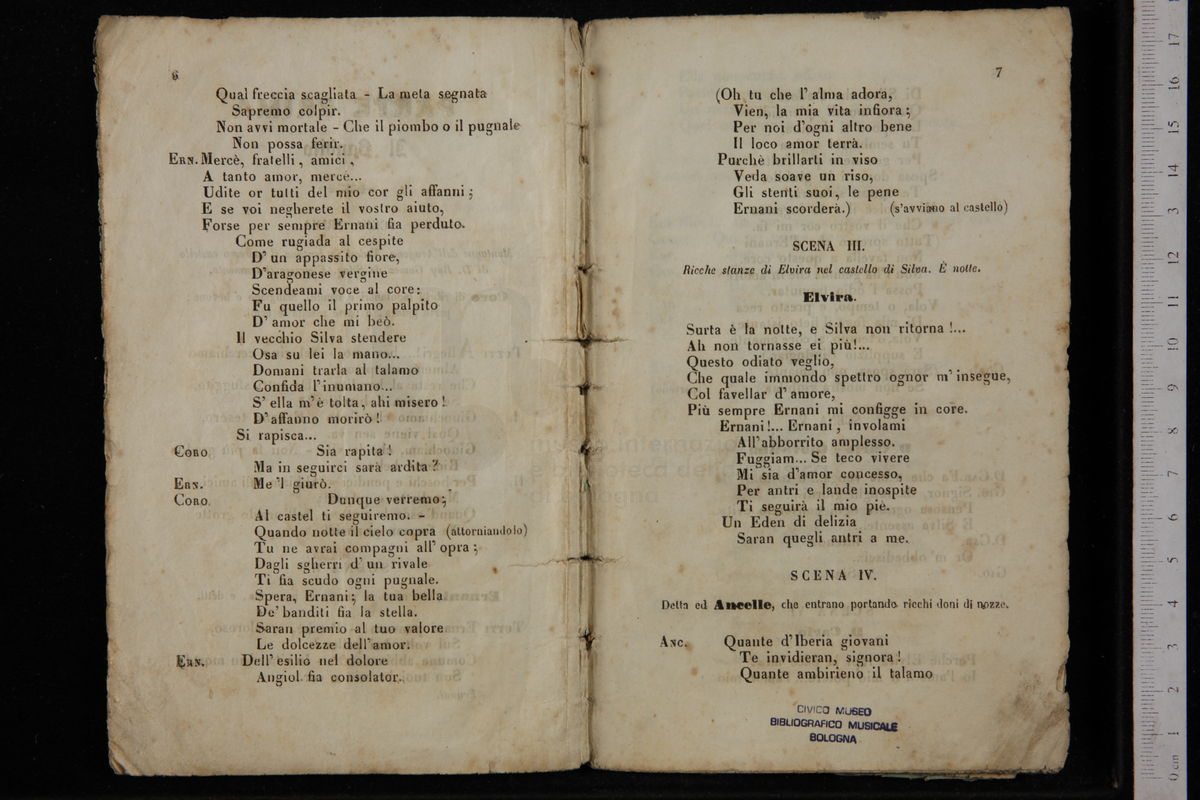 6
Qual freccia scagliata - La meta segnata
Sapremo colpir.
Non avvi mortale - Che il piombo o il pugnale
Non possa ferir.
ERN. Mercè, fratelli, amici,
A tanto amor, mercè...
Udite or tutti del mio cor gli affanni;
E se voi negherete il vostro aiuto,
Forse per sempre Ernani fia perduto.
Come rugiada al cespite
D' un appassito fiore,
D'aragonese vergine
Scendeami voce al core:
Fu quello il primo palpito
D' amor che mi beò.
Il vecchio Silva stendere
Osa su lei la mano...
Domani trarla al talamo
Confida l'inumano...
S' ella m'è tolta, ahi misero!
D'affanno morirò!
Si rapisca...
CORO Sia rapita!
Ma in seguirci sarà ardita?
ERN. Me 'l giurò.
CORO. Dunque verremo;
Al castel ti seguiremo. -
Quando notte il cielo copra (attorniandolo)
Tu ne avrai compagni all' opra;
Dagli sgherri d' un rivale
Ti fia scudo ogni pugnale.
Spera, Ernani; la tua bella
De' banditi fia la stella.
Saran premio al tuo valore
Le dolcezze dell'amor.
ERN. Dell' esilio nel dolore
Angiol fia consolator.
7
(Oh tu che l' alma adora,
Vien, la mia vita infiora;
Per noi d'ogni altro bene
Il loco amor terrà.
Purchè brillarti in viso
Veda soave un riso,
Gli stenti suoi, le pene
Ernani scorderà.) (s'avviano al castello)
SCENA III.
Ricche stanze di Elvira nel castello di Silva. È notte.
Elvira.
Surta è la notte, e Silva non ritorna!...
Ah non tornasse ei più!...
Questo odiato veglio,
Che quale immondo spettro ognor m' insegue,
Col favellar d' amore,
Più sempre Ernani mi configge in core.
Ernani!... Ernani, involami
All'abborrito amplesso.
Fuggiam... Se teco vivere
Mi sia d'amor concesso,
Per antri e lande inospite
Ti seguirà il mio piè.
Un Eden di delizia
Saran quegli antri a me.
SCENA IV.
Detta ed Ancelle, che entrano portando ricchi doni di nozze.
ANC. Quante d'Iberia giovani
Te invidieran, signora!
Quante ambirieno il talamo
CIVICO MUSEO
BIBLIOGRAFICO MUSICALE
BOLOGNA